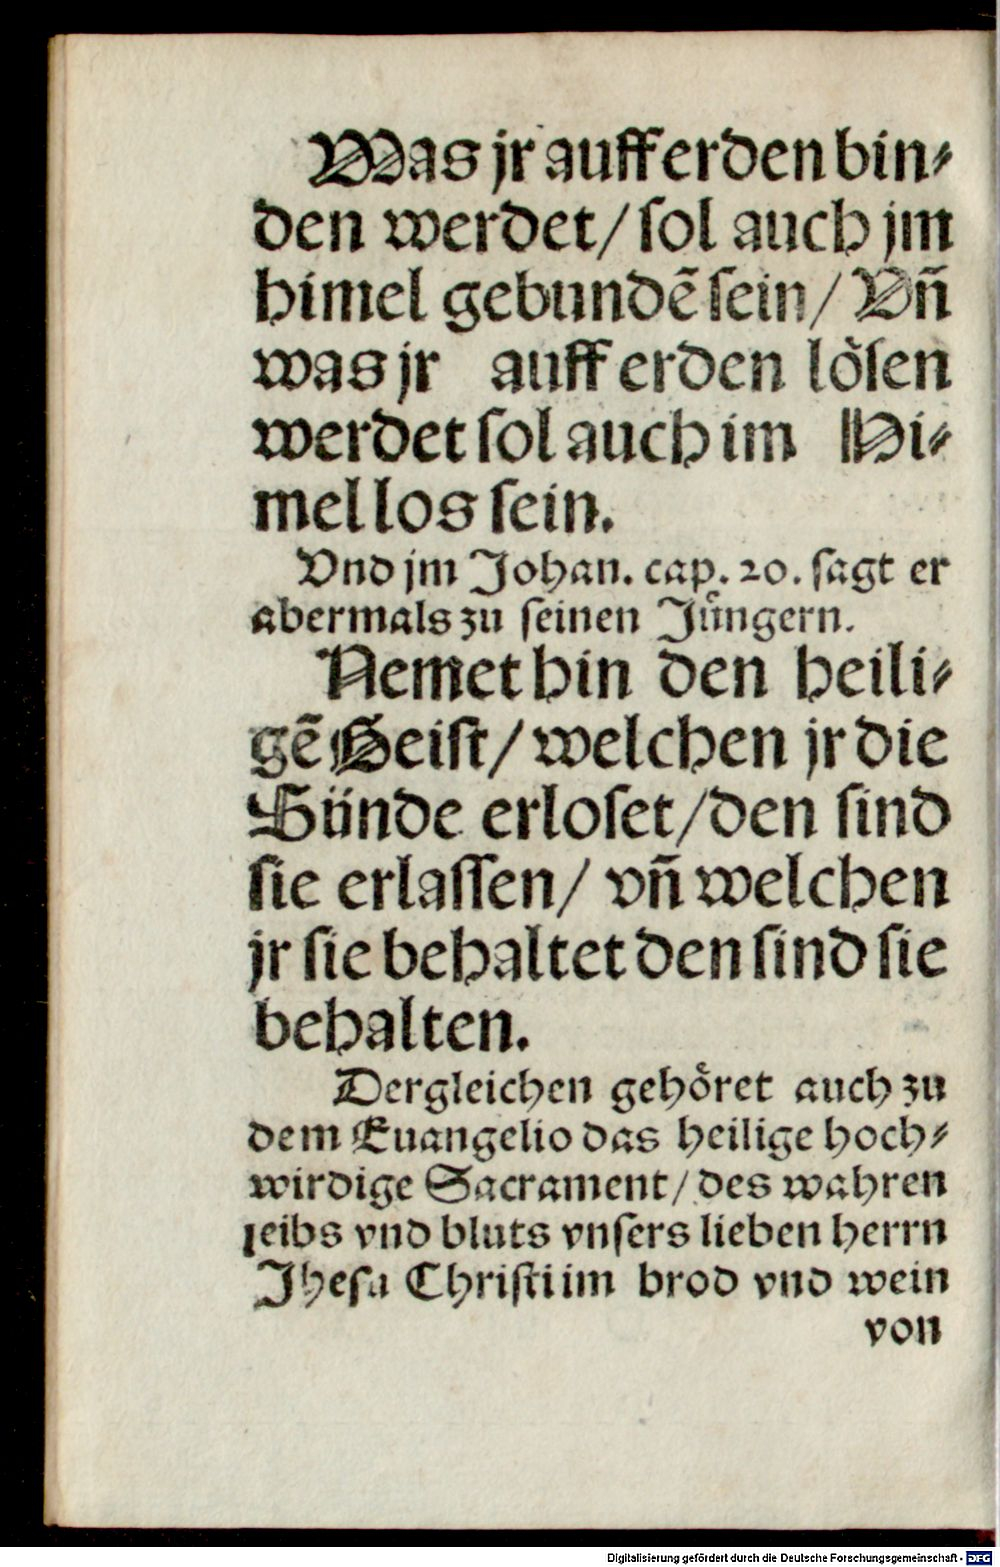 Was jr auff erden bin⸗
den werdet / sol auch jm
himel gebundē sein / Vñ
was jr auff erden lösen
werdet sol auch im Hi⸗
mel los sein.
Vnd jm Johan. cap. 20. sagt er
abermals zu seinen Jüngern.
Nemet hin den heili⸗
gē Geist / welchen jr die
Sünde erloset / den sind
sie erlassen / vñ welchen
jr sie behaltet den sind sie
behalten.
Dergleichen gehöret auch zu
dem Euangelio das heilige hoch⸗
wirdige Sacrament / des wahren
leibs vnd bluts vnsers lieben herrn
Jhesu Christi im brod vnd wein
von
Digitalisierung gefördert durch die Deutsche Forschungsgemeinschaft - DFG